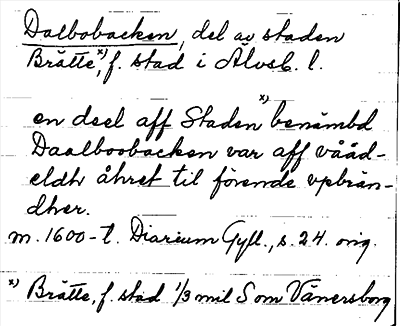 Dalbobacken, del av staden
Brätte x), f. stad i Älvsb. l.
en deel aff Staden x) benämbd
Daalboobacken var aff vååd-
eldh åhret til förende vpbrän-
dher.
m. 1600-t. Diarium Gyll., s. 24. orig.
x) Brätte, f. stad 1/3 mil S om Vänersborg